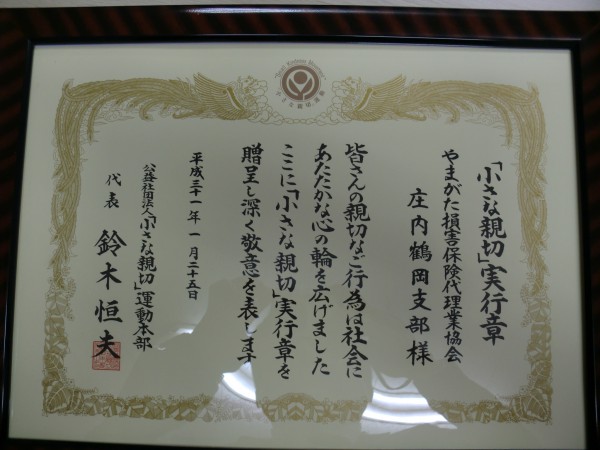 「小さな親切」実行章
やまがた損害保険代理業協会
庄内鶴岡支部様
皆さんの親切なご行為は社会に
あたたかな心の輪を広げました
ここに「小さな親切」実行章を
贈呈し深く敬意を表します
平成三十一年一月二十五日
公益社団法人「小さな親切」運動本部
代表 鈴木恒夫